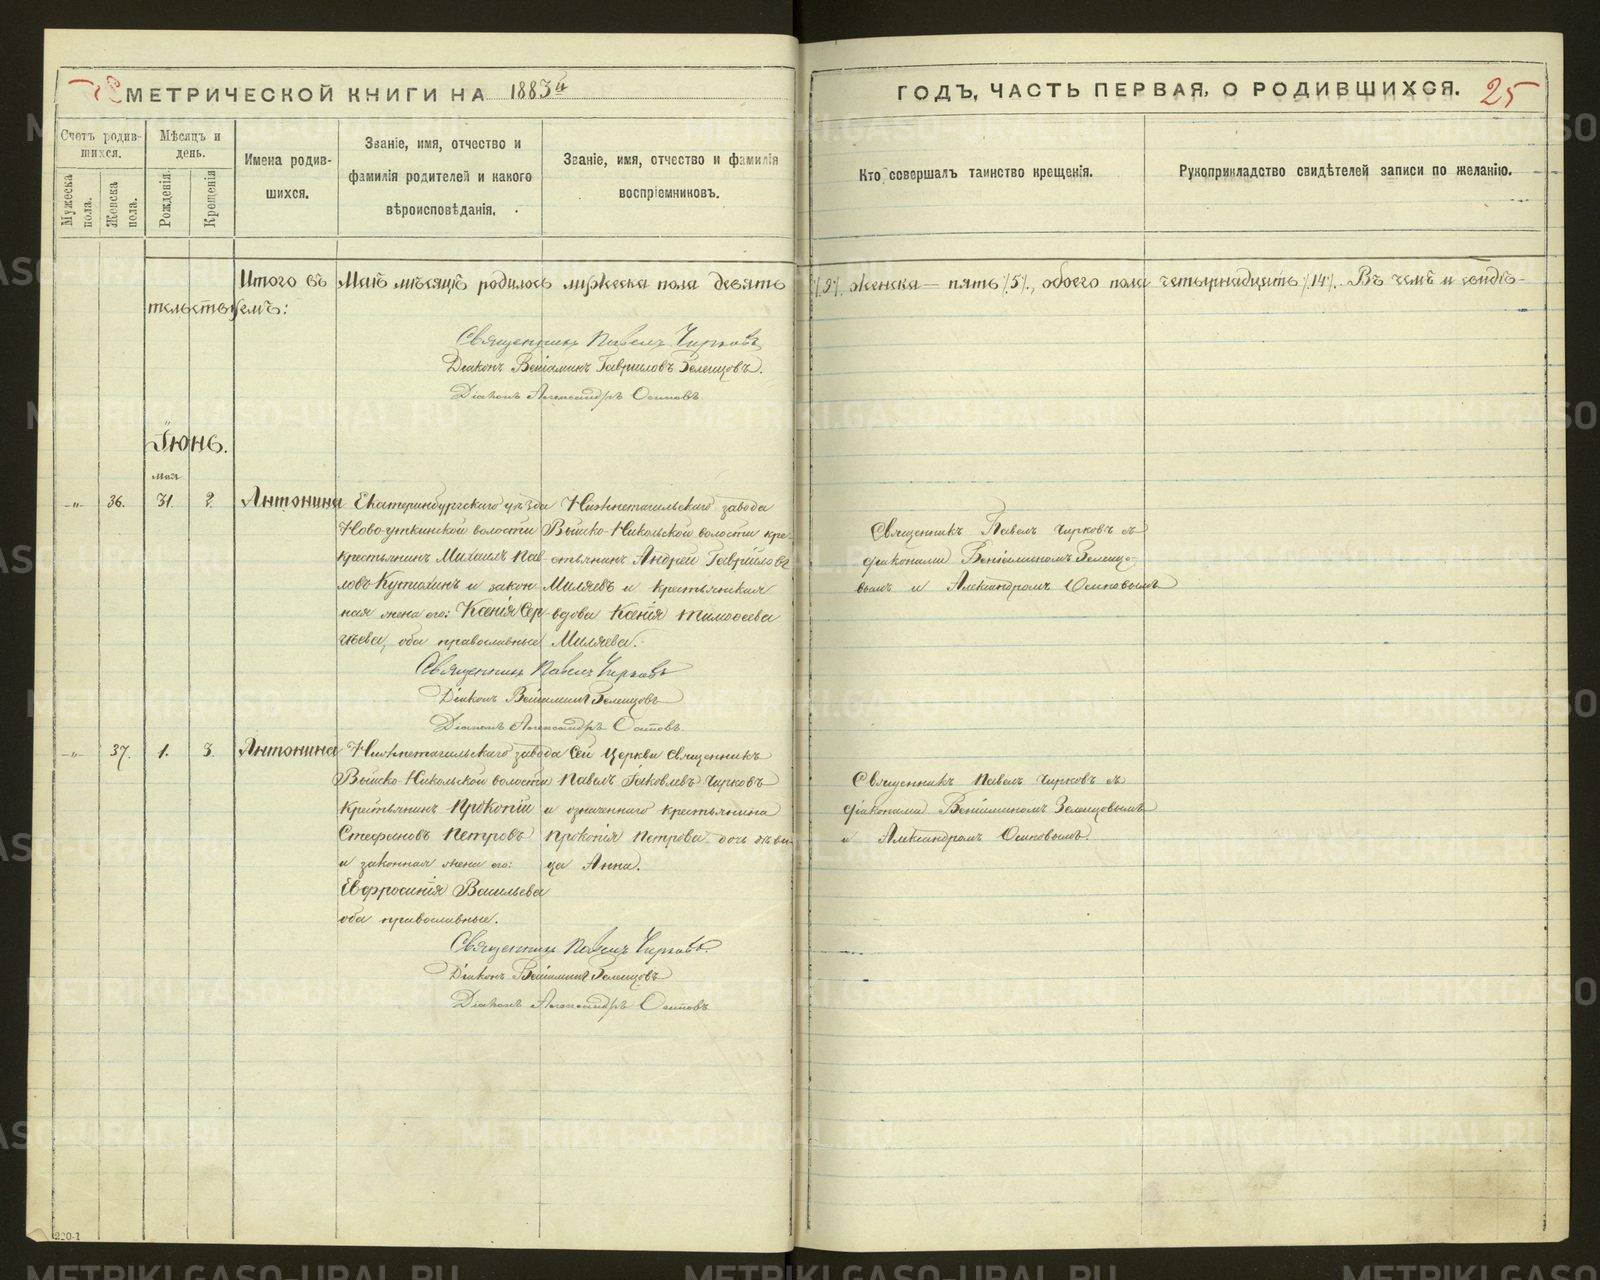 МЕТРИЧЕСКОЙ КНИГИ НА 1883й ГОДЪ, ЧАСТЬ ПЕРВАЯ, О РОДИВШИХСЯ. 25
Счетъ родив-
шихся.
Мужеска пола.
Женска пола.
Мѣсяцъ и
день.
Рожденія.
Крещенія
Имена родив-
шихся.
Званіе, имя, отчество и
фамилія родителей и какого
вѣроисповѣданія.
Званіе, имя, отчество и фамилія
воспріемниковъ.
Кто совершалъ таинство крещенія.
Рукоприкладство свидѣтелей записи по желанію.
Итого въ Маѣ мѣсяцѣ родилось мужеска пола девять /.9/. женска — пять /.5/., обоего пола четырнадцать /.14/. Въ чемъ и свидѣ-
тельствуемъ:
Священникъ Павелъ Чирковъ
Діаконъ Веніаминъ Гавриловъ Зеленцовъ.
Діаконъ Александръ Осиповъ
Іюнь.
мая
-„- 36. 31 2. Антонина
Екатеринбургскаго уѣзда
Ново-уткинской волости
крестьянинъ Михаилъ Пав-
ловъ Кутюхинъ и закон-
ная жена его: Ксенія Сер-
гѣева, оба православные
Нижнетагильскаго завода
Выйско-Никольской волости кре-
стьянинъ Андрей Гавриловъ
Миляевъ и крестьянская
вдова Ксенія Тимофеева
Миляева.
Священникъ Павелъ Чирковъ съ
діаконами Веніаминомъ Зеленцо-
вымъ и Александромъ Осиповымъ
Священникъ Павелъ Чирковъ
Діаконъ Веніаминъ Зеленцовъ
Діаконъ Александръ Осиповъ.
-„- 37. 1. 3. Антонина
Нижнетагильскаго завода
Выйско-Никольской волости
Крестьянинъ Прокопій
Стефановъ Петровъ
и законная жена его:
Евфросинія Васильева
оба православные.
Сей церкви священникъ
Павелъ Іаковлевъ Чирковъ
и означеннаго крестьянина
Прокопія Петрова дочь дѣви-
ца Анна.
Священникъ Павелъ Чирковъ съ
діаконами Веніаминомъ Зеленцовымъ
и Александромъ Осиповымъ.
Священникъ Павелъ Чирковъ.
Діаконъ Веніаминъ Зеленцовъ
Діаконъ Александръ Осиповъ
220-1
METRIKI.GASO-URAL.RU